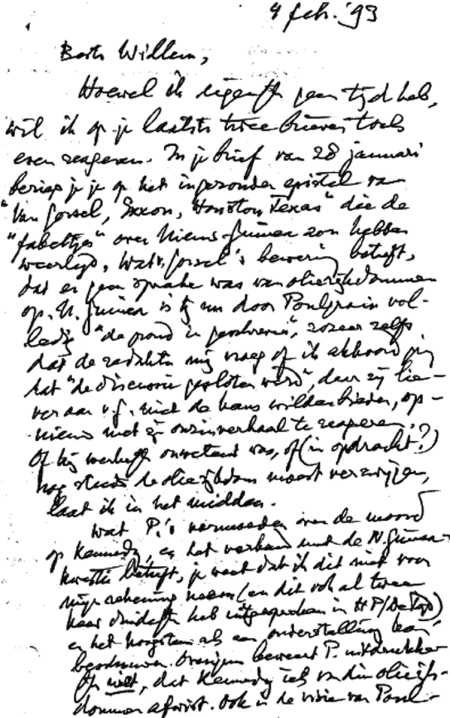 4 feb. '93
Beste Willem,
Hoewel ik eigenlijk geen tijd heb,
wil ik op je laatste twee brieven toch
even reageren. In je brief van 28 januari
beriep je je op het ingezonden epistel van
"Van Gorsel, Exxon, Houston Texas" die de
"fabeltjes" over Nieuw-Guinea zou hebben
weerlegd. Wat v. Gorsel's bewering betreft,
dat er geen sprake was van olierijkdommen
op N. Guinea is hij nu door Poulgrain vol-
ledig "de grond in geschreven", zozeer zelfs
dat de redaktie mij vroeg of ik akkoord ging
dat "de discussie gesloten werd", daar zij lie-
ver aan v.G. niet de kans wilden bieden, op-
nieuw met zijn onzinverhaal te reageren.
Of hij werkelijk onwetend was, of (in opdracht?)
nog steeds de olierijkdom moest verzwijgen,
laat ik in het midden.
Wat P.'s vermoeden over de moord
op Kennedy, en het verband met de N. Guinea-
kwestie betreft, je weet dat ik dit niet voor
mijn rekening neem (en dit ook al twee
keer duidelijk heb uitgesproken in HP/De Tijd)
en het hoogstens als een onderstelling kan
beschouwen. Overigens beweert P. uitdrukkelijk
niet, dat Kennedy iets van die olierijk-
dommen afwist. Ook in de visie van Poul-